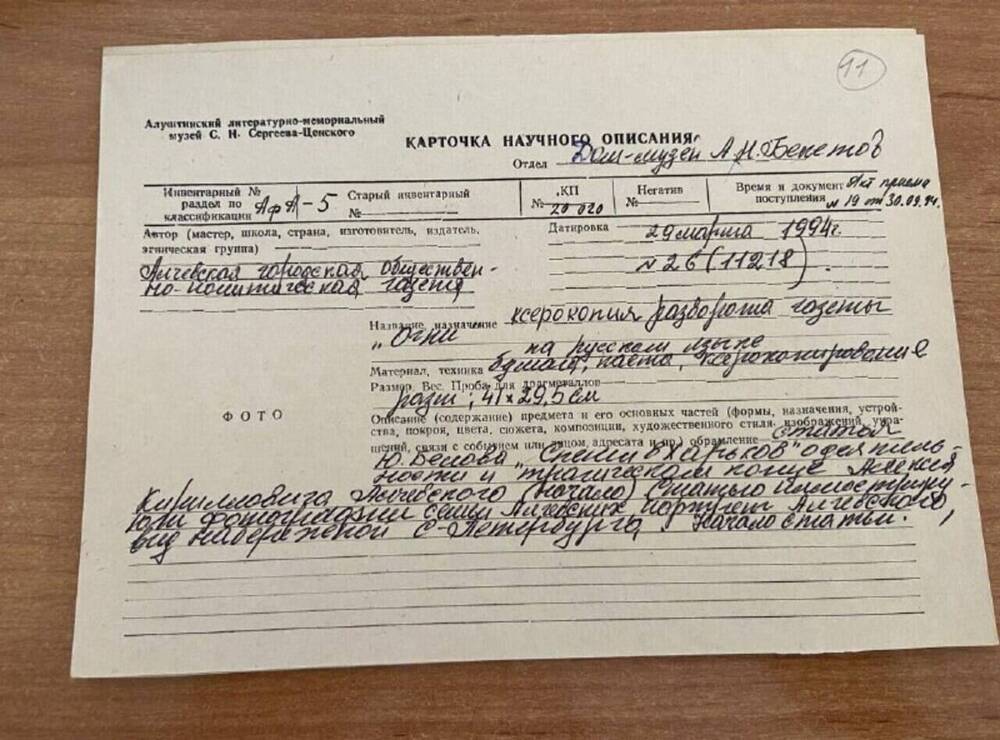 11
Алуштинский литературно-мемориальный
музей С. Н. Сергеева-Ценского
КАРТОЧКА НАУЧНОГО ОПИСАНИЯ
Отдел Дом-музей А.Н. Бекетов
Инвентарный №
раздел по
классификации АфА-5
Старый инвентарный
№
КП
№ 20 020
Негатив
№
Время и документ Акт приема
поступления № 19 от 30.09.94.
Автор (мастер, школа, страна, изготовитель, издатель,
этническая группа)
Алчевская городская обществен-
но-политическая газета
Датировка 29 марта 1994г.
№ 26 (11218)
Название, назначение ксерокопия разворота газеты
"Огни на русском языке
Материал, техника бумага, паста, ксерокопирование
Размер. Вес. Проба для драгметаллов
разм; 41×29,5 см
ФОТО
Описание (содержание) предмета и его основных частей (формы, назначения, устрой-
ства, покроя, цвета, сюжета, композиции, художественного стиля, изображений, укра-
шений, связи с событием или лицом, адресата и пр.) обрамление статья
Ю. Белова "Спешив Харьков" о деятель-
ности и трагическом конце Алексея
Кирилловича Алчевского (начало) Статью иллюстриру-
юти фотографии семьи Алчевских, портрет Алчевского,
вид набережной С-Петербурга. Начало статьи.